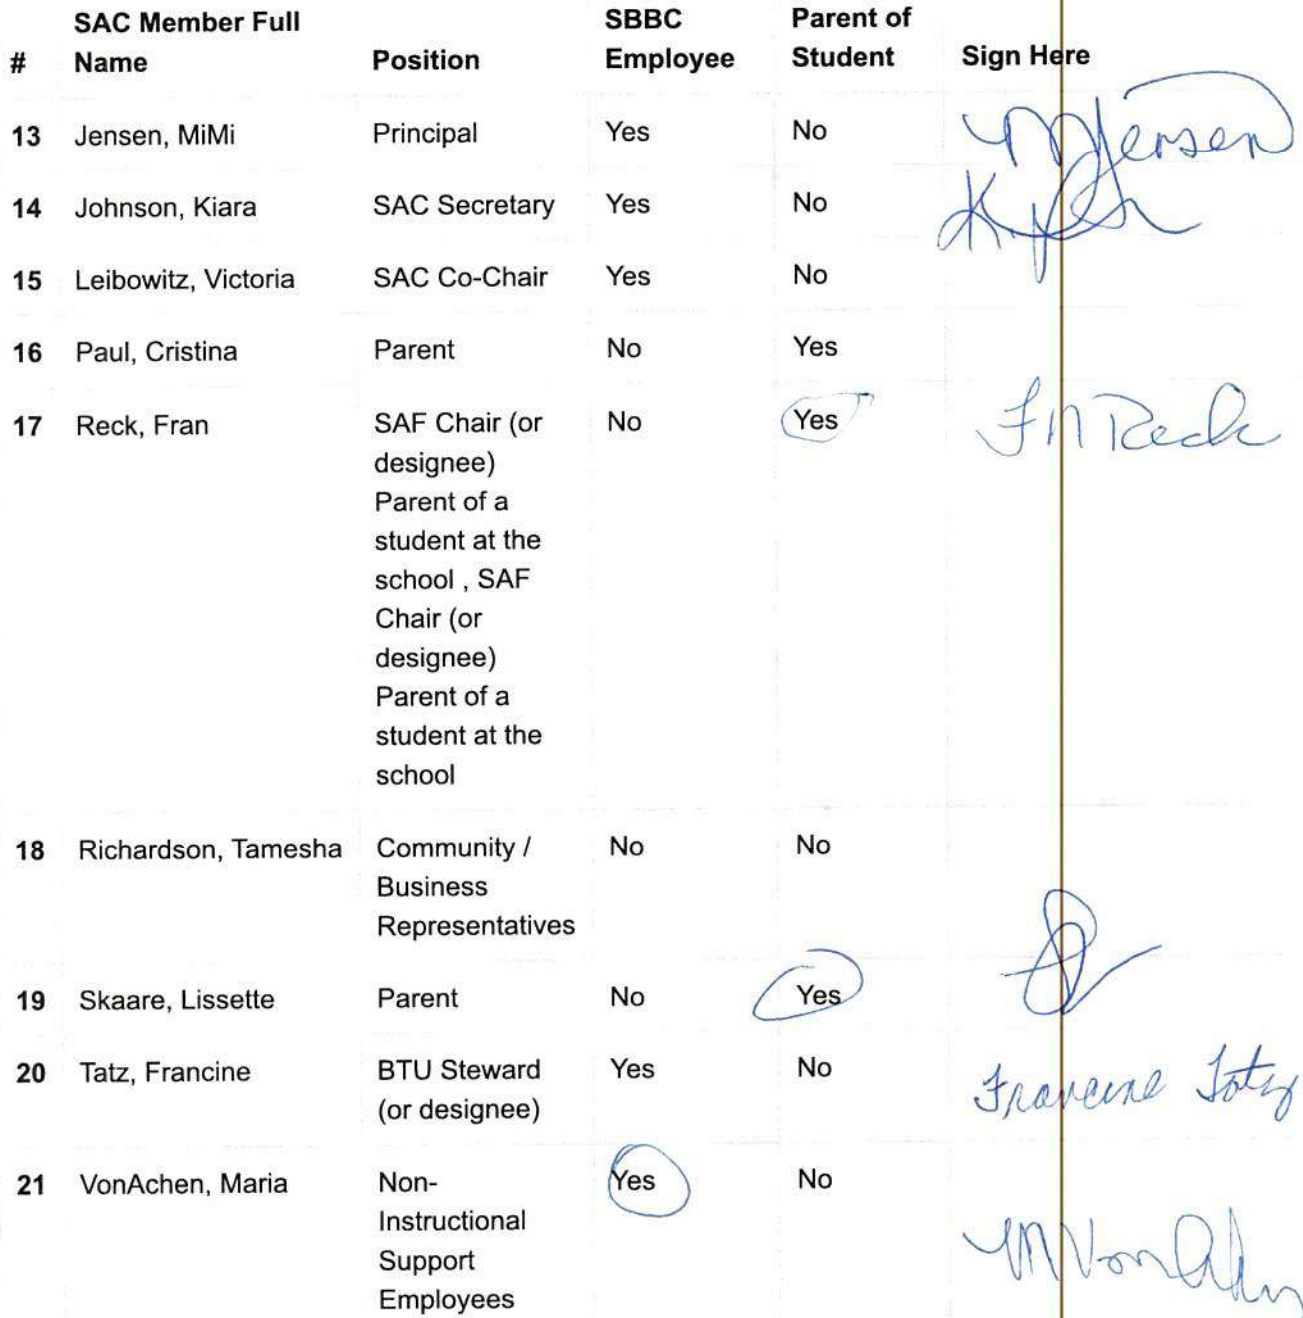 # SAC Member Full Name Position SBBC Employee Parent of Student Sign Here
13 Jensen, MiMi Principal Yes No MJensen
14 Johnson, Kiara SAC Secretary Yes No
15 Leibowitz, Victoria SAC Co-Chair Yes No
16 Paul, Cristina Parent No Yes
17 Reck, Fran SAF Chair (or No Yes FMReck
designee)
Parent of a
student at the
school , SAF
Chair (or
designee)
Parent of a
student at the
school
18 Richardson, Tamesha Community / No No
Business
Representatives
19 Skaare, Lissette Parent No Yes
20 Tatz, Francine BTU Steward Yes No Francine Tatz
(or designee)
21 VonAchen, Maria Non- Yes No
Instructional
Support
Employees